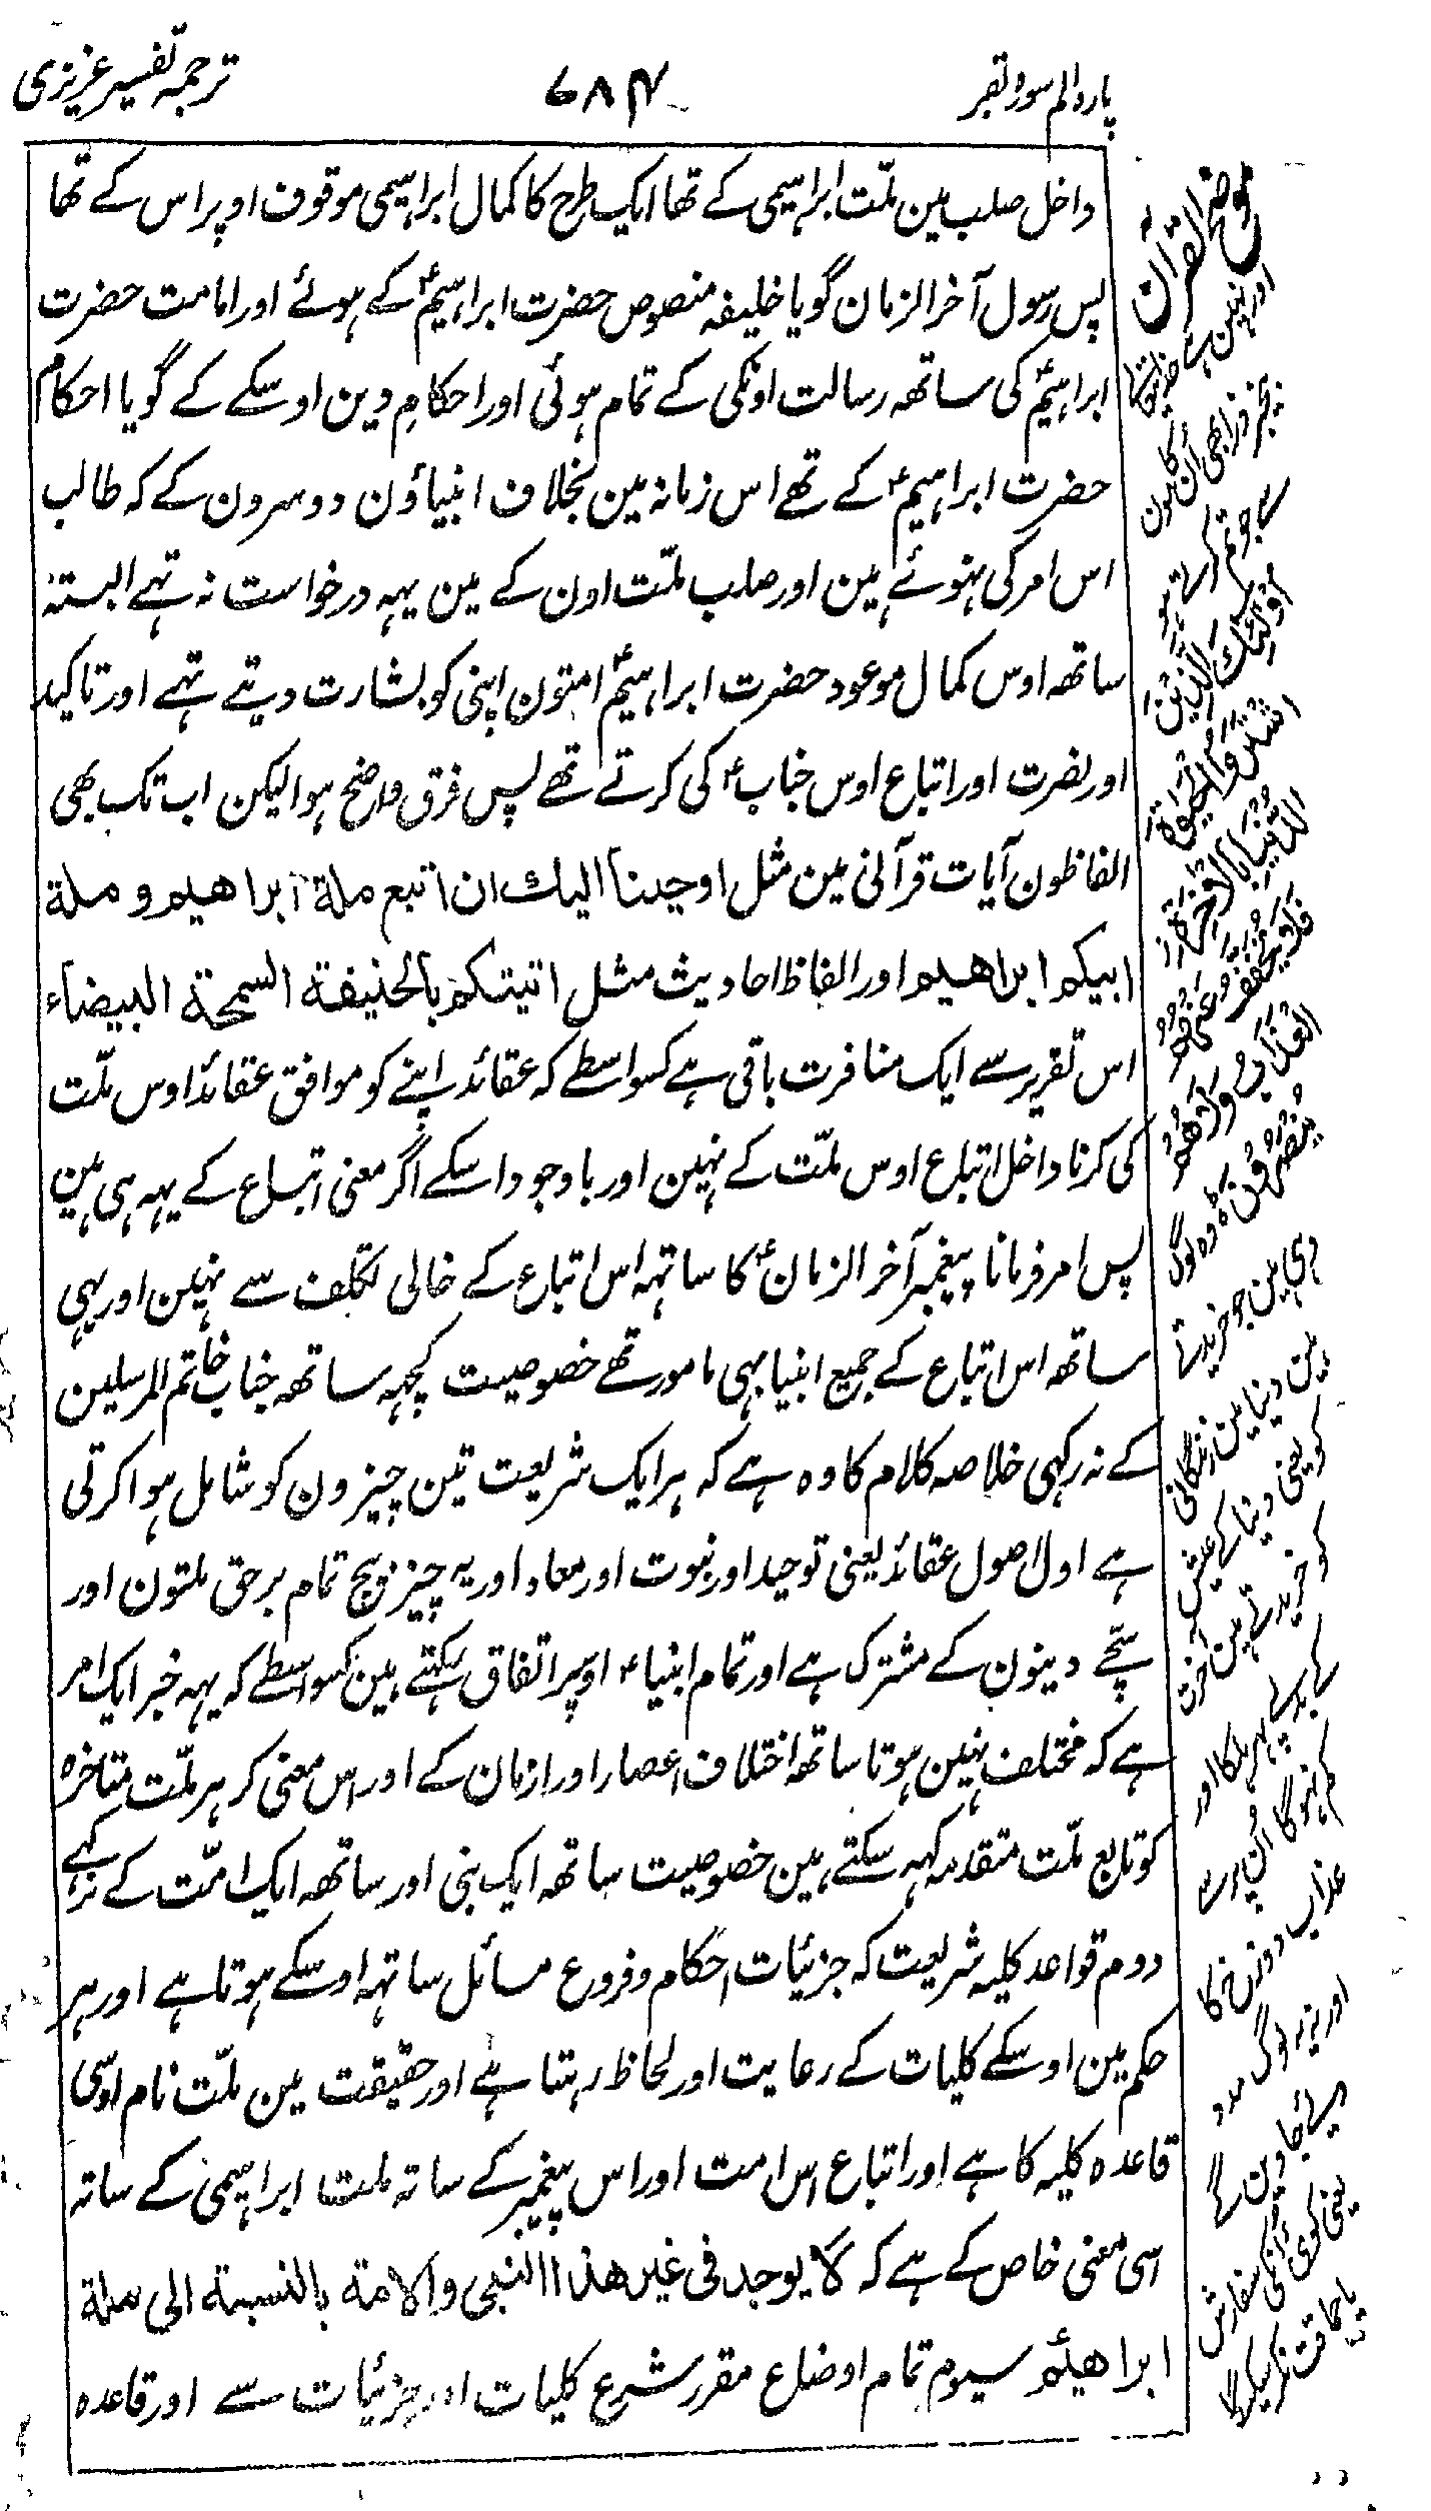 پارہ الم سورہ بقر
۶۸۴
ترجمہ تفسیر عزیزی
داخل صلب مین ملّت ابراہیمی کے تھا ایک طرح کا کمال ابراہیمی موقوف اوپر اس کے تھا
پس رسول آخر الزمان گویا خلیفہ منصوص حضرت ابراہیمؑ کے ہوئے اور امامت حضرت
ابراہیمؑ کی ساتھ رسالت اونکی کے تمام ہوئی اور احکامِ دین اوسکے کے گویا احکام
حضرت ابراہیمؑ کے تھے اس زمانہ مین بخلاف انبیاؤن دوسرون کے کہ طالب
اس امر کی ہنوئے ہین اور صلب ملّت اون کے مین یہہ درخواست نہ تہے البتہ
ساتھ اوس کمال موعود حضرت ابراہیمؑ امتون اپنی کو بشارت دیتے تہے اور تاکید
اور نصرت اور اتباع اوس جنابؑ کی کرتے تھے پس فرق واضح ہوا لیکن اب تک بھی
الفاظون آیات قرآنی مین مثل اوحینا الیك ان اتبع ملة ابراهیم و ملة
ابیکم ابراهیم اور الفاظ احادیث مثل اتیتکم بالحنیفة السمحة البیضاء
اس تقریر سے ایک منافرت باقی ہے کسواسطے کہ عقائد اپنے کو موافق عقائد اوس ملّت
کی کرنا داخل اتباع اوس ملّت کے نہین اور باوجود اسکے اگر معنی اتباع کے یہہ ہی ہین
پس امر فرمانا پیغمبر آخر الزمانؑ کا ساتہہ اس اتباع کے خالی تکلف سے نہین اور یہی
ساتھ اس اتباع کے جمیع انبیا بہی مامور تھے خصوصیت کچہہ ساتھ جناب خاتم المرسلین
کے نہ رکہی خلاصہ کلام کا وہ ہے کہ ہر ایک شریعت تین چیزون کو شامل ہوا کرتی
ہے اول اصول عقائد یعنی توحید اور نبوت اور معاد اور یہ چیز بیچ تمام برحق ملتون اور
سچّے دینون کے مشترک ہے اور تمام انبیاءؑ اوپر اتفاق رکہتے ہین کسواسطے کہ یہہ خبر ایک امر
ہے کہ مختلف نہین ہوتا ساتھ اختلاف اعصار اور ازمان کے اور اس معنی کر ہر ملّت متاخرہ
کو تابع ملّت متقدمہ کہہ سکتے ہین خصوصیت ساتھ ایک نبی اور ساتھ ایک امّت کے نرکہے
دوم قواعد کلیہ شریعت کہ جزئیات احکام و فروع مسائل ساتہہ اوسکے ہوتا ہے اور ہر
حکم مین اوسکے کلیات کے رعایت اور لحاظ رہتا ہے اور حقیقت مین ملّت نام اوسی
قاعدہ کلیہ کا ہے اور اتباع اس امت اور اس پیغمبر کے ساتہ ملت ابراہیمی کے ساتہ
اسی معنی خاص کے ہے کہ لا یوجد فی غیر هذا النبی والامة بالنسبة الی ملة
ابراهیمؑ سیوم تمام اوضاع مقرر شرع کلیات اور جزئیات سے اور قاعدہ
موضح القرآن
اور نہین ہے خدا تعالٰے
بیخبر ذرا بھی اُن کامون
سے جو تم کرتے ہو
اُولٰئِكَ الَّذِیْنَ
اشْتَرَوُا الْحَیٰوةَ
الدُّنْیَا بِالْاٰخِرَةِ
فَلَا یُخَفَّفُ عَنْهُمُ
الْعَذَابُ وَلَا هُمْ
یُنْصَرُوْنَ وہ لوگ
وہی ہین جو خریدتے
ہین دنیا مین زندگانی
کو یعنی دنیا کے عیش
کو خریدتے ہین آخرت
کے بدلے پھر ہلکا اور
کم نہوگا اُن پر سے
عذاب دوزخ کا
اور نہ وہ لوگ مدد
دیئے جاوین گے
یعنی کوئی اُنکی سفارش
یا حمایت نکریگا